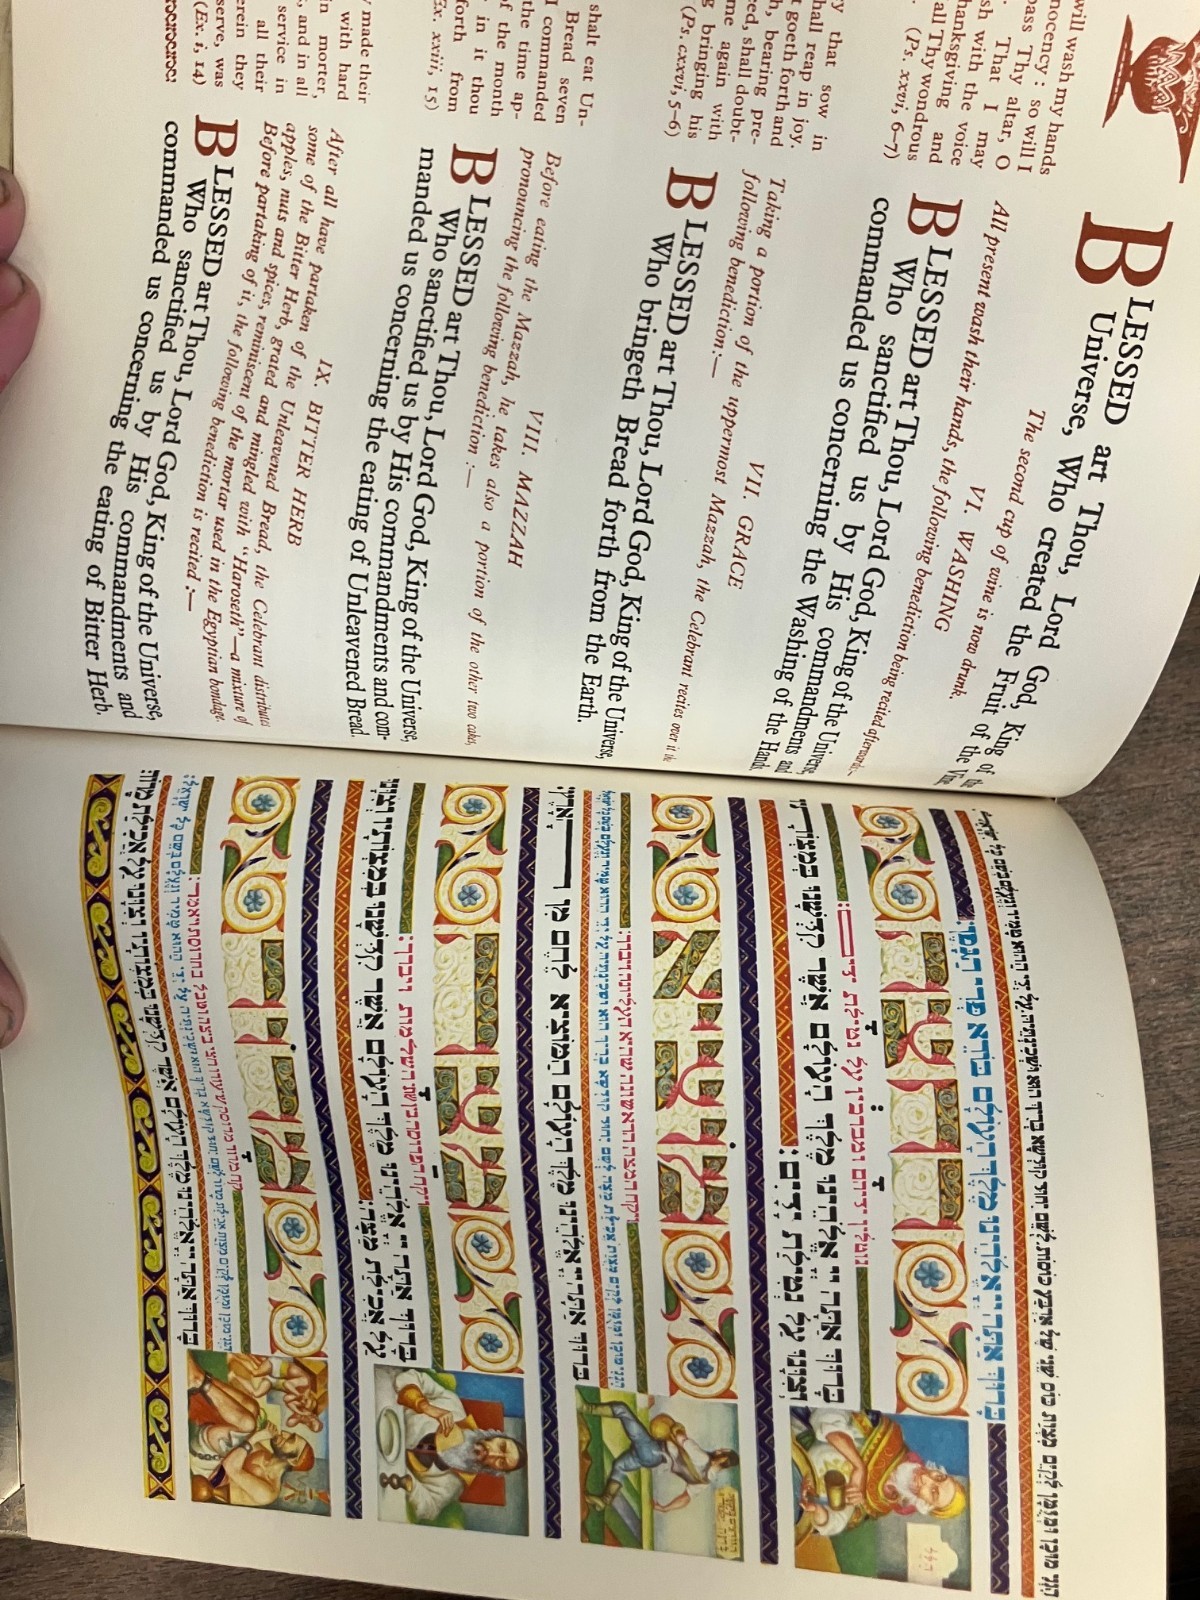 will wash my hands
nocency : so will I
pass Thy altar, O
. That I may
sh with the voice
hanksgiving and
all Thy wondrous
(Ps. xxvi, 6–7)
BLESSED art Thou, Lord God, King of the
Universe, Who created the Fruit of the Vine
The second cup of wine is now drunk.
VI. WASHING
All present wash their hands, the following benediction being recited afterwards:—
BLESSED art Thou, Lord God, King of the Universe,
Who sanctified us by His commandments and
commanded us concerning the Washing of the Hands
y that sow in
hall reap in joy.
t goeth forth and
h, bearing pre-
ed, shall doubt-
me again with
g bringing his
(Ps. cxxvi, 5–6)
VII. GRACE
Taking a portion of the uppermost Mazzah, the Celebrant recites over it the
following benediction:—
BLESSED art Thou, Lord God, King of the Universe,
Who bringeth Bread forth from the Earth.
shalt eat Un-
Bread seven
I commanded
the time ap-
of the month
in it thou
forth from
Ex. xxiii, 15)
VIII. MAZZAH
Before eating the Mazzah, he takes also a portion of the other two cakes,
pronouncing the following benediction :—
BLESSED art Thou, Lord God, King of the Universe,
Who sanctified us by His commandments and com-
manded us concerning the eating of Unleavened Bread.
made their
with hard
in morter,
, and in all
service in
all their
erein they
serve, was
(Ex. i, 14)
IX. BITTER HERB
After all have partaken of the Unleavened Bread, the Celebrant distributes
some of the Bitter Herb, grated and mingled with "Haroseth"—a mixture of
apples, nuts and spices, reminiscent of the mortar used in the Egyptian bondage.
Before partaking of it, the following benediction is recited :—
BLESSED art Thou, Lord God, King of the Universe,
Who sanctified us by His commandments and
commanded us concerning the eating of Bitter Herb.
בָּרוּךְ אַתָּה יְיָ אֱלֹהֵינוּ מֶלֶךְ הָעוֹלָם בּוֹרֵא פְּרִי הַגָּפֶן:
רחצה
נוטלין ידיהם ומברכין על נטילת ידים:
בָּרוּךְ אַתָּה יְיָ אֱלֹהֵינוּ מֶלֶךְ הָעוֹלָם אֲשֶׁר קִדְּשָׁנוּ בְּמִצְוֹתָיו
וְצִוָּנוּ עַל נְטִילַת יָדָיִם:
מוציא
בָּרוּךְ אַתָּה יְיָ אֱלֹהֵינוּ מֶלֶךְ הָעוֹלָם הַמּוֹצִיא לֶחֶם מִן הָאָרֶץ:
מצה
בָּרוּךְ אַתָּה יְיָ אֱלֹהֵינוּ מֶלֶךְ הָעוֹלָם אֲשֶׁר קִדְּשָׁנוּ בְּמִצְוֹתָיו וְצִוָּנוּ
עַל אֲכִילַת מַצָּה:
מרור
בָּרוּךְ אַתָּה יְיָ אֱלֹהֵינוּ מֶלֶךְ הָעוֹלָם אֲשֶׁר קִדְּשָׁנוּ בְּמִצְוֹתָיו וְצִוָּנוּ עַל אֲכִילַת מָרוֹר: